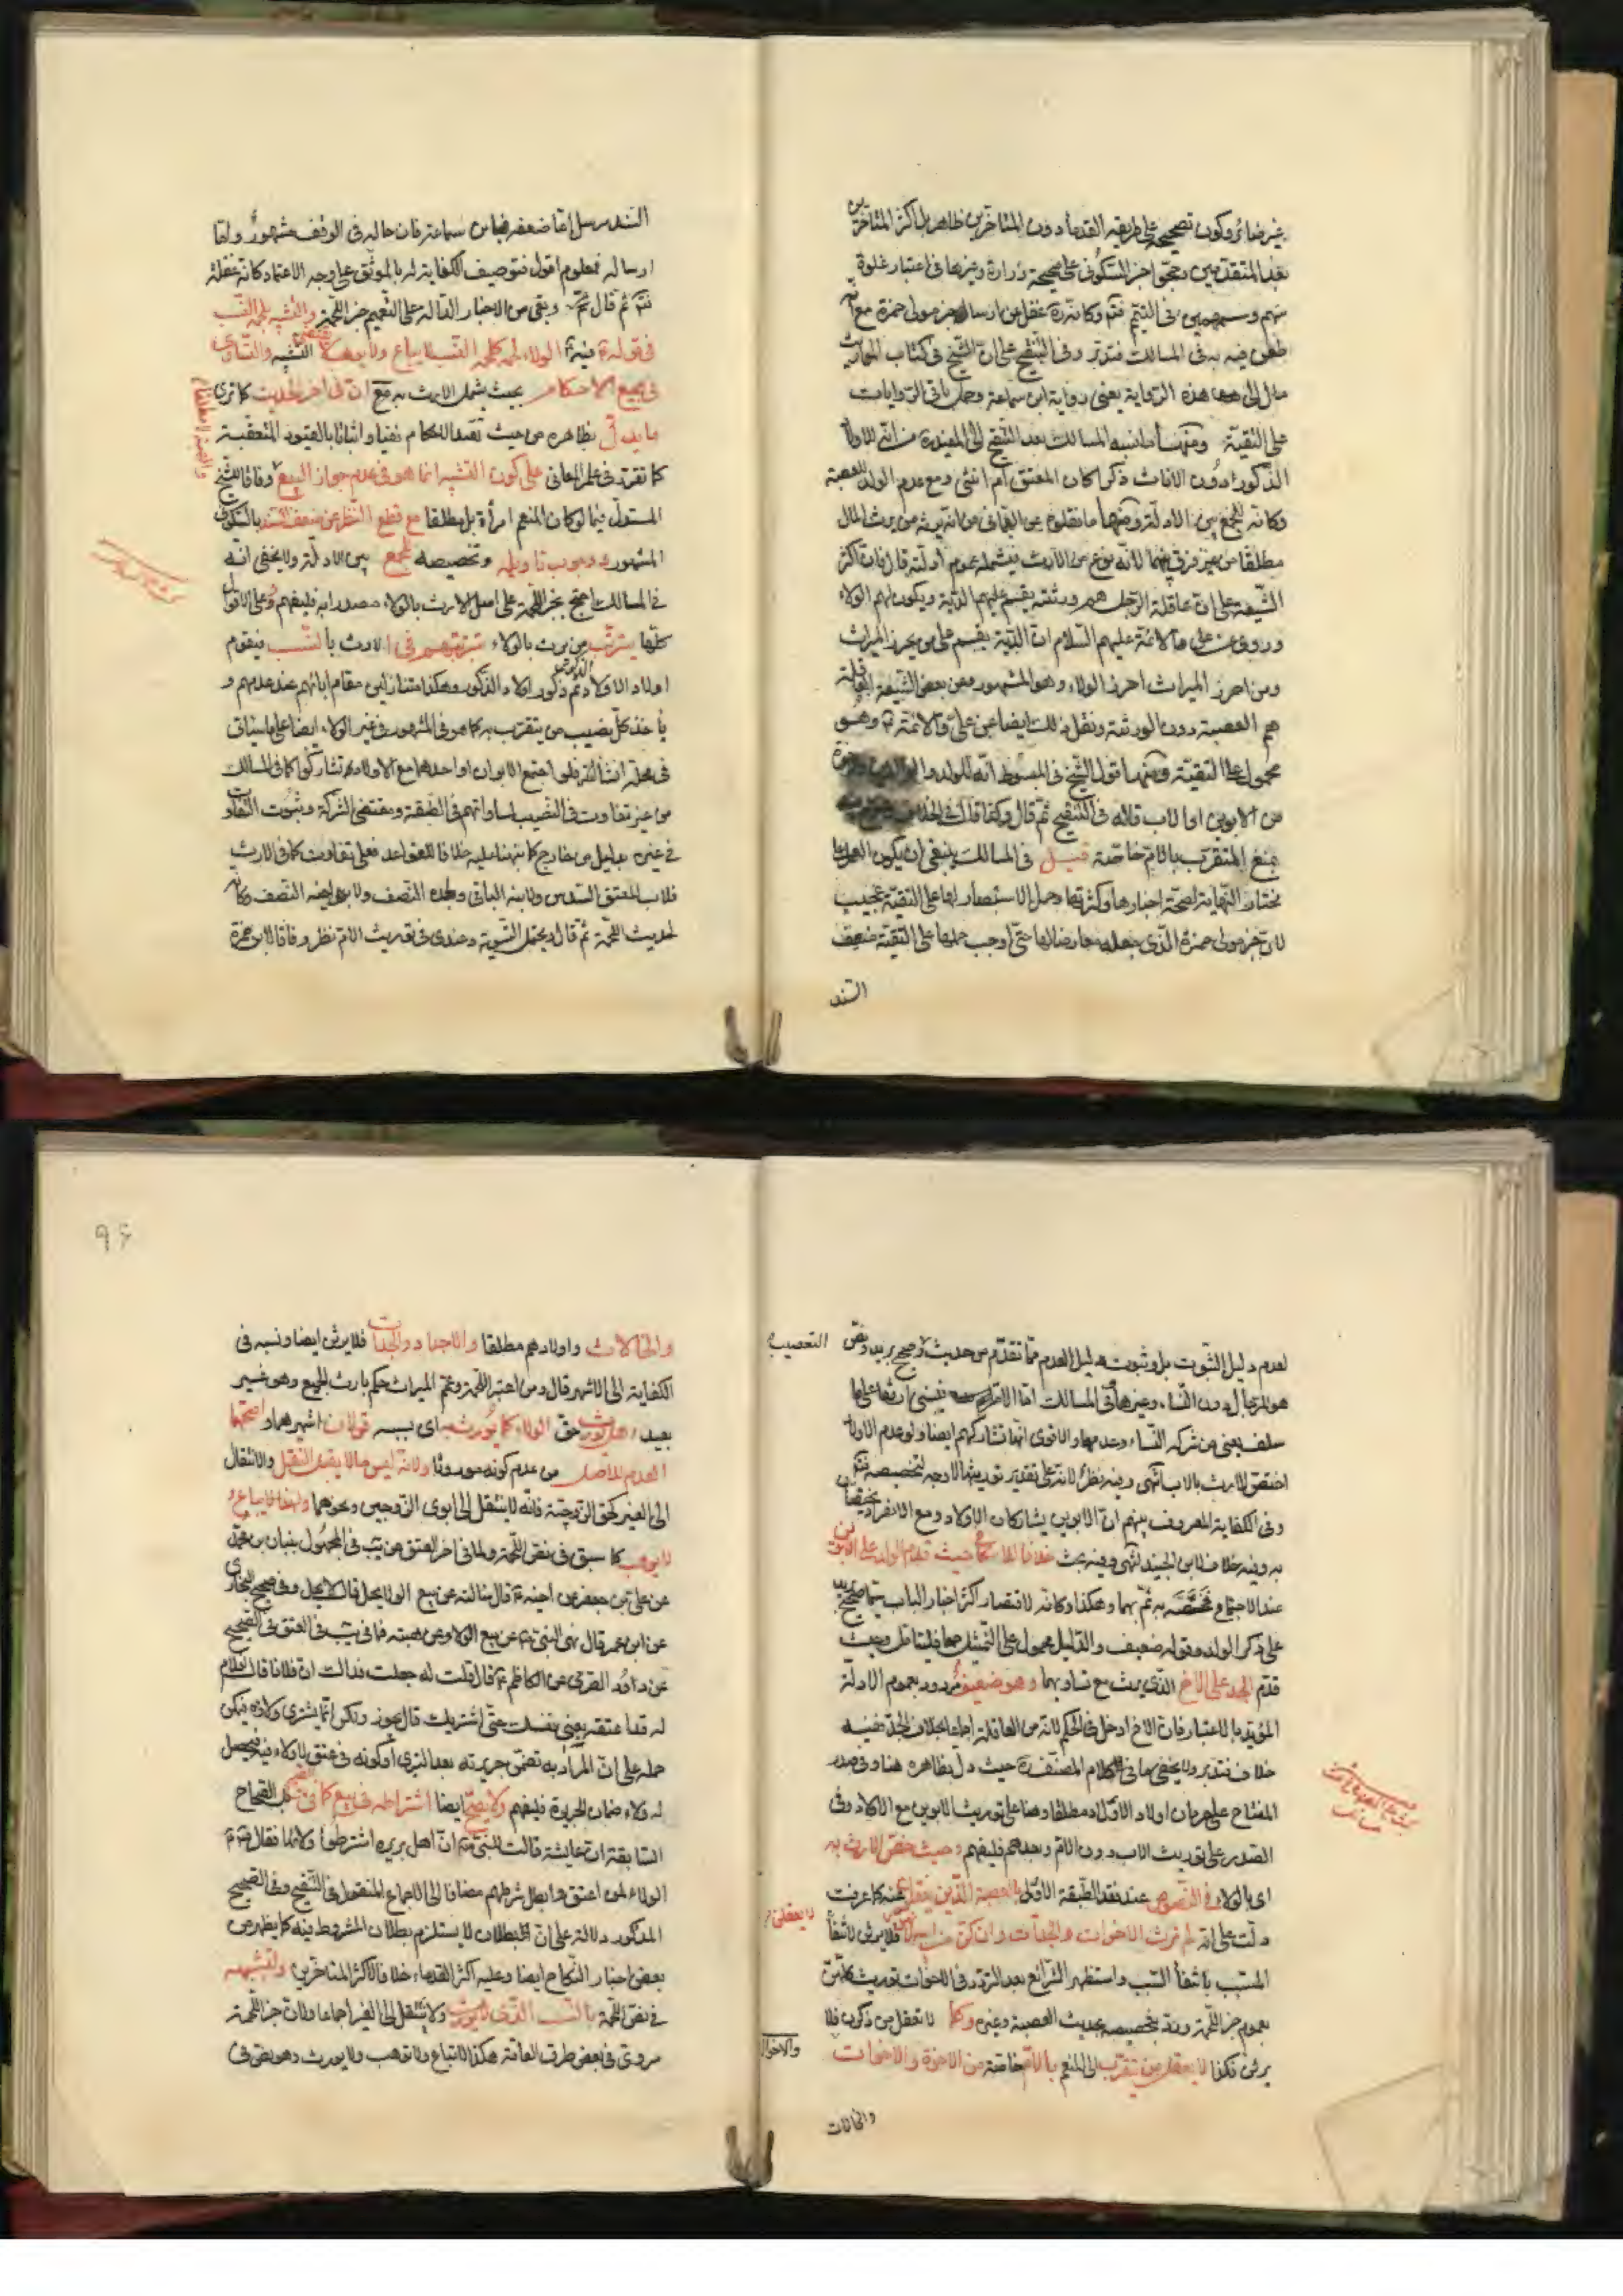 غير ضائر وكون تصحيحه على طريقة القدماء دون المتأخرين ظاهر بل اكثر المتأخرين
بعد المتقدمين رجحوا خبر السكوني على صحيحة زرارة وغيرها في اعتبار غلوة
سهم وسهمين في التيمم فتم وكانه ره غفل عن ارسال خبر مولى حمزة مع انه
طعن فيه به في المسالك فتدبر وفي التنقيح على ان الشيخ في كتاب المواريث
مال الى هذه الرواية يعني رواية ابن سماعة وحمل باقي الروايات
على التقية ومنها ما نسبه المسالك بعد التنقيح الى المفيد ره من انه للاولاد
الذكور دون الاناث ذكرا كان المعتق ام انثى ومع عدم الولد للعصبة
وكانه للجمع بين الادلة ومنها ما نقلوه عن العماني من انه يرثه من يرث المال
مطلقا من غير فرق بينهما لانه نوع من الارث فيشمله عموم ادلته قال فان اكثر
الشيعة على ان عاقلة الرجل هم ورثته يقسم عليهم الدية ويكون لهم الولاء
وروي عن علي والائمة عليهم السلام ان الدية يقسم على من يحرز الميراث
ومن احرز الميراث احرز الولاء وهو المشهور وعن بعض الشيعة العاقلة
هم العصبة دون الورثة ونقل ذلك ايضا عن علي والائمة ع وهو
محمول على التقية ومنها قول الشيخ في المبسوط انه للولد
من الابوين او الاب قاله في التنقيح ثم قال وكذا قال في الخلاف
بمنع المتقرب بالام خاصة قيل في المسالك ينبغي ان يكون العمل على
مختار النهاية لصحة اخبارها وكثرتها وحمل الاستبصار لها على التقية عجيب
لان خبر مولى حمزة الذي جعله معارضا لها حتى اوجب حملها على التقية ضعيف
السند
السند مرسل اما ضعفه فبابن سماعة فان حاله في الوقف مشهور واما
ارساله فمعلوم اقول فتوصيف الكفاية له بالموثق على وجه الاعتماد كانه غفلة
فتم ثم قال ثم وبقي من الاخبار الدالة على التعميم خبر اللحمة والتشبيه بلحمة النسب
في قوله ع فيه الولاء لحمة كلحمة النسب لا يباع ولا يوهب لا يقتضي التشبيه والتساوي
في جميع الاحكام بحيث يشمل الارث به مع ان في اخر الحديث كما ترى
ما يدل بظاهره من حيث تقييد الكلام نفيا واثباتا بالقيود المتعقبة
كما تقرر في علم المعاني على كون التشبيه انما هو في عدم جواز البيع وفاقا للشيخ
المستدل فيما لو كان المنعم امرأة بل مطلقا مع قطع النظر عن ضعف السند بالسكوني
المشهور ووجوب تاويله وتخصيصه للجمع بين الادلة ولا يخفى انه
في المسالك احتج بخبر اللحمة على اصل الارث بالولاء مصدرا به فليفهم وعلى الاقوال
كلها يترتب من يرث بالولاء ترتبهم في الارث بالنسب فيقوم
اولاد الاولاد الذكور ثم ذكور اولاد الذكور وهكذا متنازلين مقام ابائهم عند عدمهم و
ياخذ كل نصيب من يتقرب به كما هو في المشهور في غير الولاء ايضا على ما سياتي
في محله انشاء الله فلو اجتمع الابوان او احدهما مع الاولاد تشاركوا كما في المسالك
من غير تفاوت في النصيب لمساواتهم في الطبقة ومقتضى الشركة وثبوت التفاوت
في غيره بدليل من خارج كما نبهنا عليه خلافا للقواعد فعلى تفاوت كما في الارث
فلاب المعتق السدس ولابنه الباقي ولجده النصف ولابن اخيه النصف وكانه
لحديث اللحمة ثم قال ويحتمل التسوية وعندي في توريث الام نظر وفاقا لابن حمزة
لعدم دليل الثبوت بل وثبوت دليل العدم مما تقدم من حديث لا صحيح بريد ونص التعصيب
هو للرجال دون النساء وغيرها في المسالك اما الام فيبنى ارثها على ما
سلف يعني من شركة النساء وعدمها والاقوى انها تشاركهم ايضا ولو عدم الاولاد
اختص الارث بالاب انتهى وفيه نظر لانه على تقدير توريثها لا وجه لتخصيصه فتم
وفي الكفاية المعروف بينهم ان الابوين يشاركان الاولاد ومع الانفراد يختصان
به وفيه خلاف لابن الجنيد انتهى وفيه بحث خلافا للاسكافي حيث قدم الولد على الابوين
عند الاجتماع فخصصه به ثم بهما وهكذا وكانه لاقتصار اكثر اخبار الباب سيما صحيح بريد
على ذكر الولد وقوله ضعيف والدليل محمول على التمثيل جمعا فليتامل وحيث
قدم الجد على الاخ الذي يرث مع تساويهما وهو ضعيف مردود بعموم الادلة
المؤيد بالاعتبار فان الاخ ادخل في الحكم لانه من العاقلة اجماعا بخلاف الجد ففيه
خلاف فتدبر ولا يخفى ما في كلام المصنف ره حيث دل بظاهره هنا وفي صدر
المفتاح على حرمان اولاد الاولاد مطلقا وهنا على توريث الابوين مع الاولاد وفي
الصدر على توريث الاب دون الام وبعدهم فليفهم وحيث خص الارث به
اى بالولاء في النصوص عند فقد الطبقة الاولى بالعصبة الذين يعقلون عنه كما عرفت
دلت على انه لم ترث الاخوات والجدات وان كن من ابيه فلا يرثن لانتفاء
المسبب بانتفاء السبب واستظهر الشرائع بعد التردد في الاخوات توريث كلهن
بعموم خبر اللحمة ورد بتخصيصه بحديث العصبة وغيره وكما لا تعقل من ذكرن فلا
يرثن فكذا لا يعقل من يتقرب الى المنعم بالام خاصة من الاخوة والاخوات والاخوال
والخالات
۹۶
والخالات واولادهم مطلقا والاجداد والجدات فلا يرثن ايضا ونسبه في
الكفاية الى الاشهر قال ومن اعتبر اللحمة وعمم الميراث حكم بارث الجميع وهو غير
بعيد وهل يورث حق الولاء كما يورث به اى بسببه قولان اشهرهما واصحهما
العدم للاصل من عدم كونه موروثا ولانه ليس مالا يقبل النقل والانتقال
الى الغير كحق الزوجية فانه لا ينتقل الى ابوي الزوجين ونحوهما ولهذا لا يباع و
لا يوهب كما سبق في نص اللحمة ولما في اخر العتق من يب في المجهول ببنان بن محمد
عن علي بن جعفر عن اخيه ع قال سالته عن بيع الولاء يحل قال لا يحل وفي صحيح البخاري
عن ابن عمر قال نهى النبي ص عن بيع الولاء وعن هبته فما في يب في العتق في الصحيح
عن داود الصرمي عن الكاظم ع قال قلت له جعلت فداك ان فلانا قال لغلام
له قد اعتقه بعني نفسك حتى اشتريك قال يجوز ولكن انما يشتري ولاءه فيمكن
حمله على ان المراد به تضمن جريرته بعد التبري او كونه في عتق لا ولاء فيه فيحصل
له ولاء ضمان الجريرة فليفهم ولا يصح ايضا اشتراطه في بيع كما في الصحاح
السابقة ان عايشة قالت للنبي ص ان اهل بريرة اشترطوا ولائها فقال ص
الولاء لمن اعتق وابطل شرطهم مضافا الى الاجماع المنقول في التنقيح وفي الصحيح
المذكور دلالة على ان البطلان لا يستلزم بطلان المشروط فيه كما يظهر من
بعض اخبار النكاح ايضا وعليه اكثر القدماء خلافا لاكثر المتاخرين ولتشبيهه
في نص اللحمة بالنسب الذي لا يورث ولا ينتقل الى الغير اجماعا ولان خبر اللحمة
مروي في بعض طرق العامة هكذا لا تباع ولا توهب ولا يورث وهو نص في